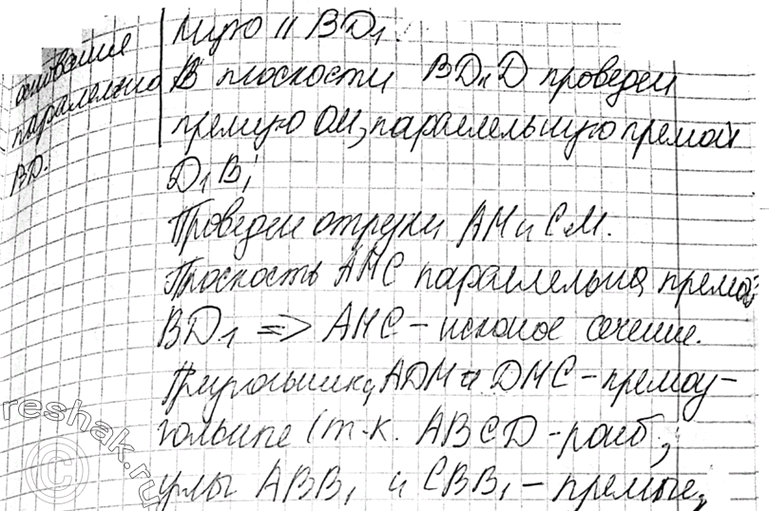 основание
параллельно
BD.
мую || BD₁.
В плоскости BD₁D проведем
прямую OM, параллельную прямой
D₁B;
Проведем отрезки AM и CM.
Плоскость AMC параллельна прямой
BD₁ => AMC – искомое сечение.
Треугольники ADM и DMC – прямоу-
гольные (т.к. ABCD – ромб,
углы ABB₁ и CBB₁ – прямые,
reshak.ru